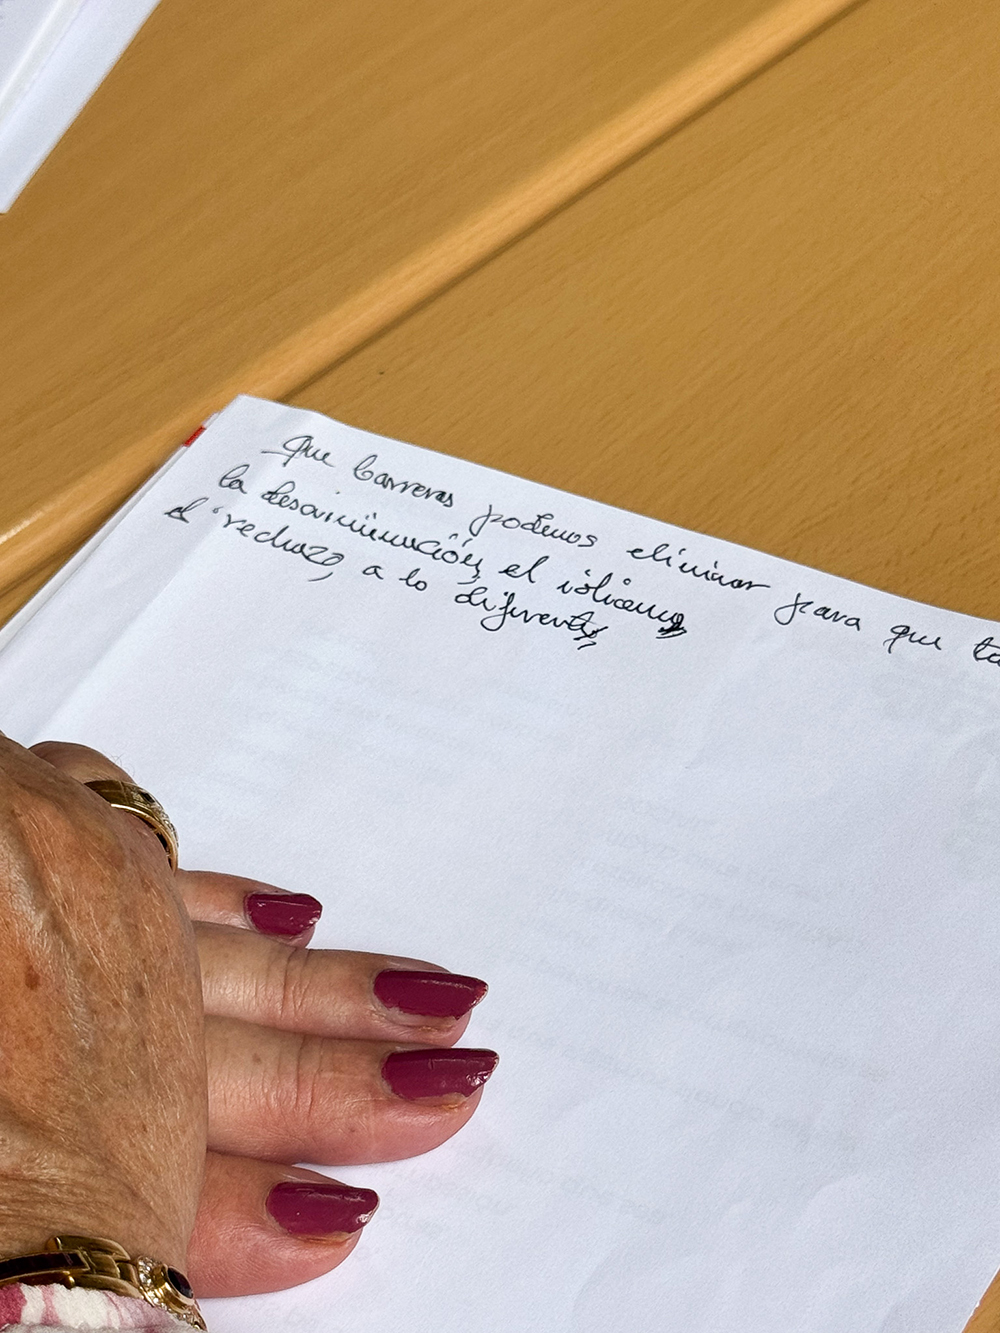 Que barreras podemos eliminar para que ta
la desaminución, el
el rechazo, a lo diferente,